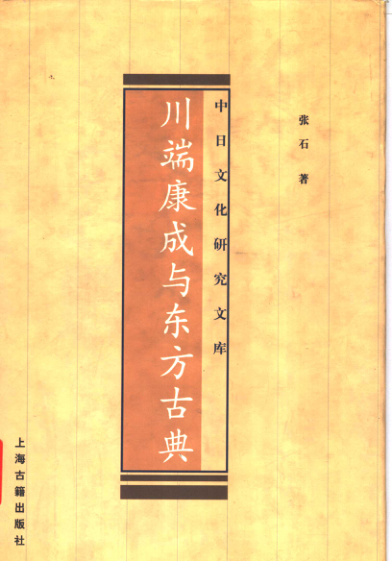 张石 著
中日文化研究文库
川端康成与东方古典
上海古籍出版社